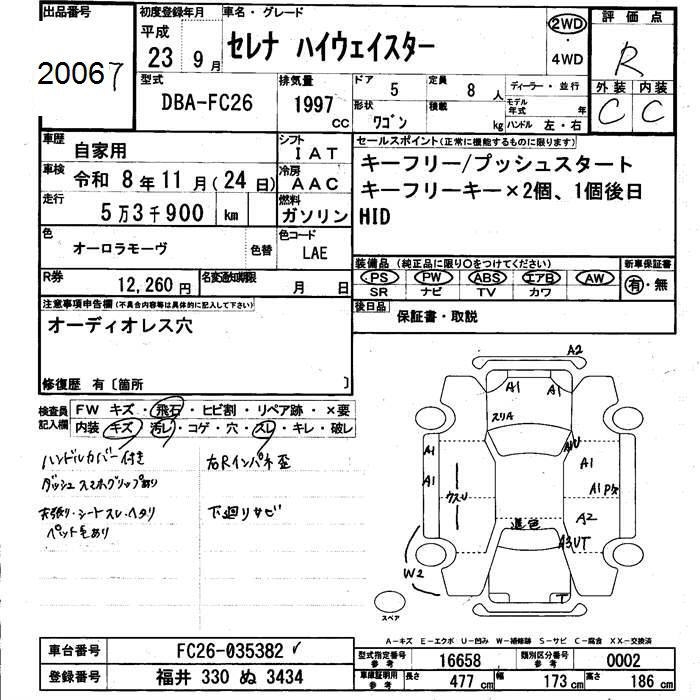 出品番号
20067
初度登録年月
平成
23 9月
車名・グレード
セレナ ハイウェイスター
2WD
・
4WD
評価点
R
外装 内装
C C
型式
DBA-FC26
排気量
1997
cc
ドア 5
定員 8 人
形状
ワゴン
積載
kg
ディーラー・並行
モデル年式 年
ハンドル 左・右
車歴
自家用
シフト
IAT
車検
令和 8年11月(24日)
冷房
AAC
走行
5万3千900 km
燃料
ガソリン
色
オーロラモーヴ
色替
色コード
LAE
R券
12,260円
名変通知期限
月 日
セールスポイント(正常に機能するものに限ります)
キーフリー/プッシュスタート
キーフリーキー×2個、1個後日
HID
装備品 (純正品に限り〇をつけてください)
PS PW ABS エアB AW
SR ナビ TV カワ
新車保証書
有・無
後日品
保証書・取説
注意事項申告欄(不具合内容等は具体的に記入して下さい)
オーディオレス穴
修復歴 有〔箇所 〕
検査員
記入欄
FW キズ・飛石・ヒビ割・リペア跡・×要
内装・キズ・汚レ・コゲ・穴・スレ・キレ・破レ
ハンドルカバー付き
ダッシュスマホグリップあり
天張り・シートスレ・ヘタリ
ペット毛あり
右Rインパネ歪
下廻りサビ
A2
A1 A1
スリA
A1 AU A1
A1 クスリ A1 Pタ
A2
退色
A3UT
W2
T
スペア
A-キズ E-エクボ U-凹み W-補修跡 S-サビ C-腐食 XX-交換済
車台番号
FC26-035382
登録番号
福井 330 ぬ 3434
型式指定番号
参考
16658
類別区分番号
参考
0002
車庫証明用
参考
長さ 477 cm
幅 173 cm
高さ 186 cm